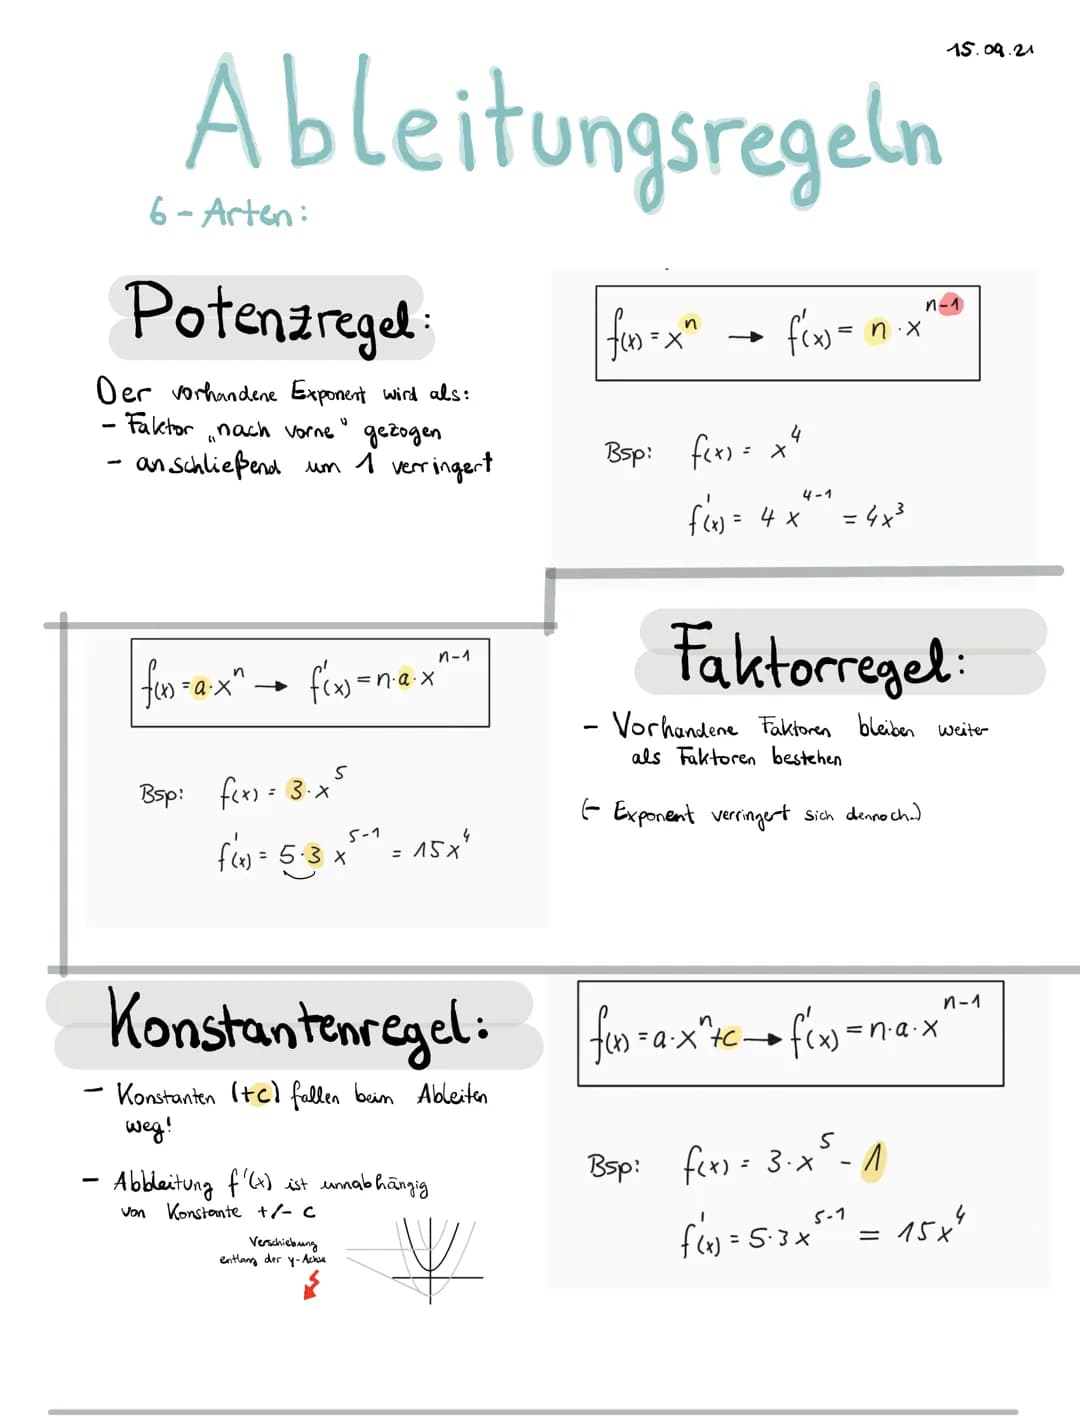 15.09.21
Ableitungsregeln
6 - Arten:
Potenzregel:
Der vorhandene Exponent wird als:
- Faktor „nach vorne" gezogen
- anschließend um 1 verringert
f(x) = xⁿ → f'(x) = n · xⁿ⁻¹
Bsp: f(x) = x⁴
f'(x) = 4x⁴⁻¹ = 4x³
Faktorregel:
- Vorhandene Faktoren bleiben weiter
als Faktoren bestehen
(- Exponent verringert sich dennoch.)
f(x) = a·xⁿ → f'(x) = n·a·xⁿ⁻¹
Bsp: f(x) = 3·x⁵
f'(x) = 5·3x⁵⁻¹ = 15x⁴
Konstantenregel:
- Konstanten (+c) fallen beim Ableiten
weg!
- Abbleitung f'(x) ist unnabhängig
von Konstante +/- c
Verschiebung
entlang der y-Achse
f(x) = a·xⁿ+c → f'(x) = n·a·xⁿ⁻¹
Bsp: f(x) = 3·x⁵ - 1
f'(x) = 5·3x⁵⁻¹ = 15x⁴